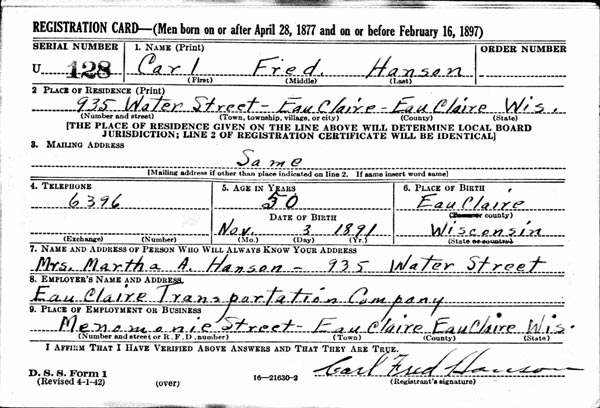 REGISTRATION CARD—(Men born on or after April 28, 1877 and on or before February 16, 1897)
SERIAL NUMBER 1. NAME (Print) ORDER NUMBER
U 128 Carl Fred. Hanson
(First) (Middle) (Last)
2 PLACE OF RESIDENCE (Print)
935 Water Street - Eau Claire - Eau Claire Wis.
(Number and street) (Town, township, village, or city) (County) (State)
[THE PLACE OF RESIDENCE GIVEN ON THE LINE ABOVE WILL DETERMINE LOCAL BOARD
JURISDICTION; LINE 2 OF REGISTRATION CERTIFICATE WILL BE IDENTICAL]
3. MAILING ADDRESS
Same
[Mailing address if other than place indicated on line 2. If same insert word same]
4. TELEPHONE 5. AGE IN YEARS 6. PLACE OF BIRTH
6396 50 Eau Claire
DATE OF BIRTH (Town or county)
Nov. 3 1891 Wisconsin
(Exchange) (Number) (Mo.) (Day) (Yr.) (State or country)
7. NAME AND ADDRESS OF PERSON WHO WILL ALWAYS KNOW YOUR ADDRESS
Mrs. Martha A. Hanson - 935 Water Street
8. EMPLOYER'S NAME AND ADDRESS
Eau Claire Transportation Company
9. PLACE OF EMPLOYMENT OR BUSINESS
Menomonie Street - Eau Claire Eau Claire Wis.
(Number and street or R. F. D. number) (Town) (County) (State)
I AFFIRM THAT I HAVE VERIFIED ABOVE ANSWERS AND THAT THEY ARE TRUE.
Carl Fred Hanson
D. S. S. Form 1
(Revised 4-1-42) (over) 16—21630-2 (Registrant's signature)